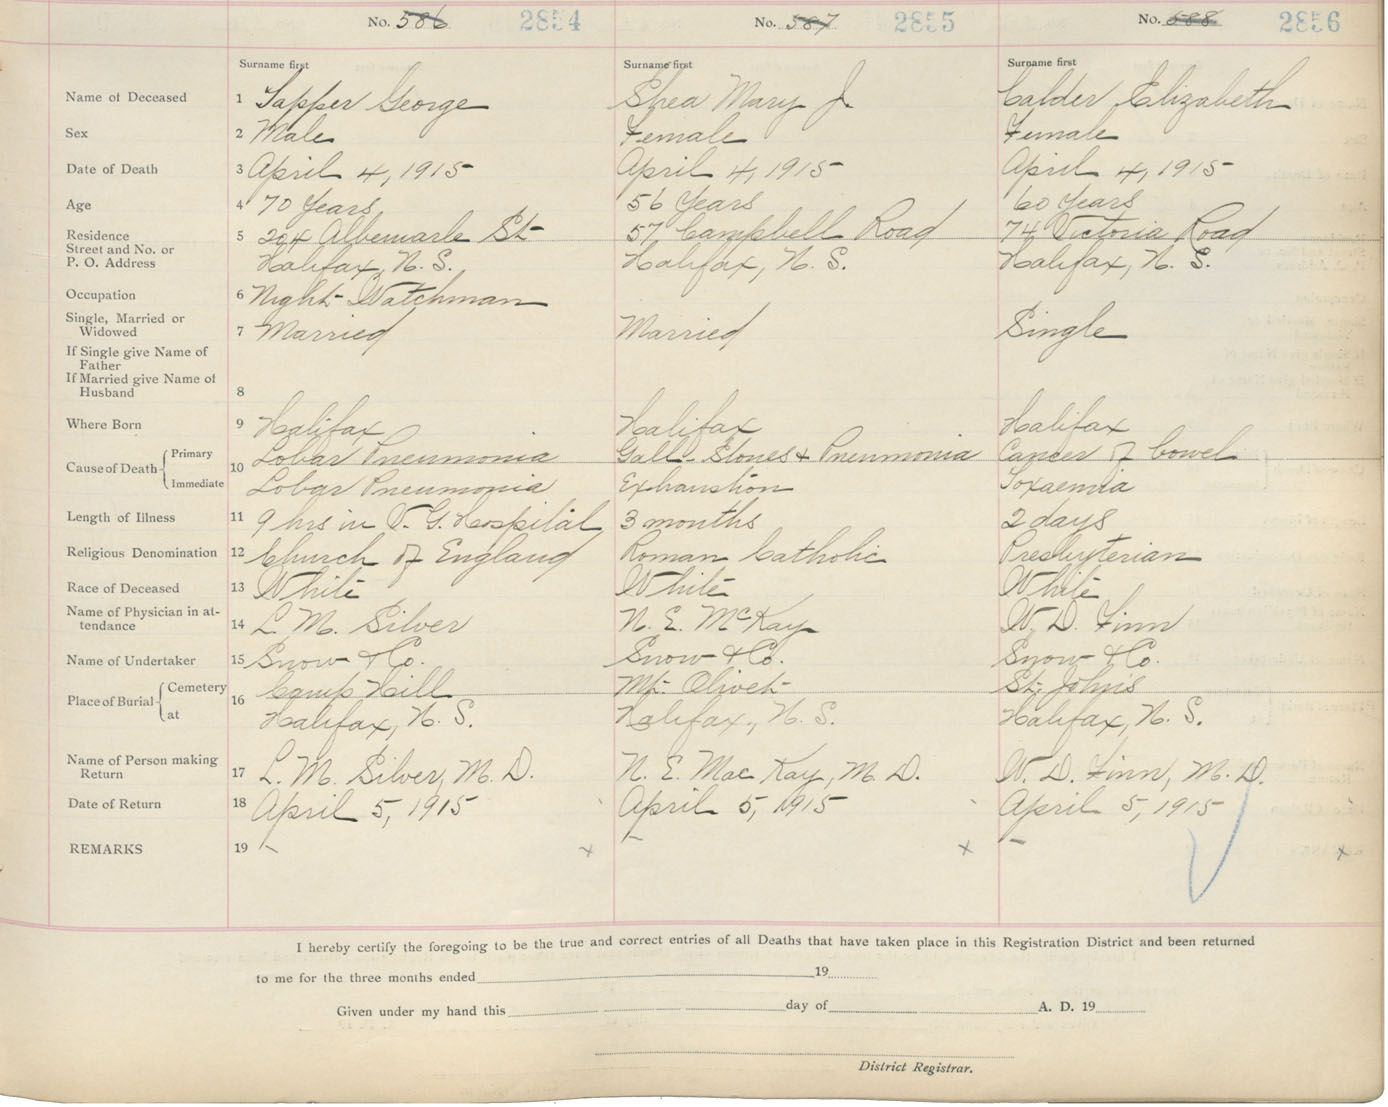 No. 586 2854 No. 587 2855 No. 688 2856
Surname first Surname first Surname first
Name of Deceased 1 Tapper George Shea Mary J Calder Elizabeth
Sex 2 Male Female Female
Date of Death 3 April 4, 1915 April 4, 1915 April 4, 1915
Age 4 70 Years 56 Years 60 Years
Residence 5 204 Albemarle St 57 Campbell Road 74 Victoria Road
Street and No. or
P. O. Address Halifax, N. S. Halifax, N. S. Halifax, N. S.
Occupation 6 Night Watchman
Single, Married or
Widowed 7 Married Married Single
If Single give Name of
Father
If Married give Name of
Husband 8
Where Born 9 Halifax Halifax Halifax
Primary Lobar Pneumonia Gall-Stones & Pneumonia Cancer of bowel
Cause of Death 10
Immediate Lobar Pneumonia Exhaustion Toxaemia
Length of Illness 11 9 hrs in V. G. Hospital 3 months 2 days
Religious Denomination 12 Church of England Roman Catholic Presbyterian
Race of Deceased 13 White White White
Name of Physician in at-
tendance 14 L. M. Silver N. E. McKay W. D. Finn
Name of Undertaker 15 Snow & Co. Snow & Co. Snow & Co.
Cemetery Camp Hill Mt. Olivet St. John's
Place of Burial 16
at Halifax, N. S. Halifax, N. S. Halifax, N. S.
Name of Person making
Return 17 L. M. Silver, M. D. N. E. MacKay, M. D. W. D. Finn, M. D.
Date of Return 18 April 5, 1915 April 5, 1915 April 5, 1915
REMARKS 19 - x - x - x
I hereby certify the foregoing to be the true and correct entries of all Deaths that have taken place in this Registration District and been returned
to me for the three months ended 19
Given under my hand this day of A. D. 19
District Registrar.